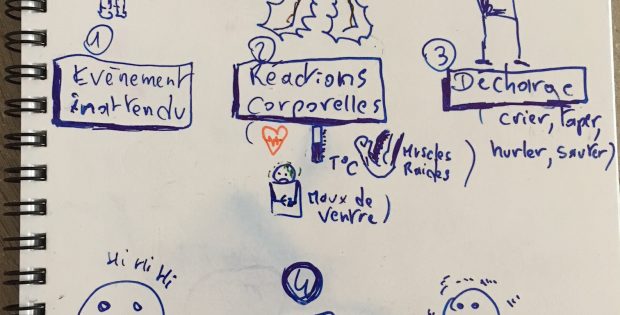 1
Evènement
inattendu
2
Réactions
corporelles
T°C
Muscles
Raides)
Maux de
ventre)
3
Décharge
(crier, taper,
hurler, sauter)
Hi Hi Hi
4